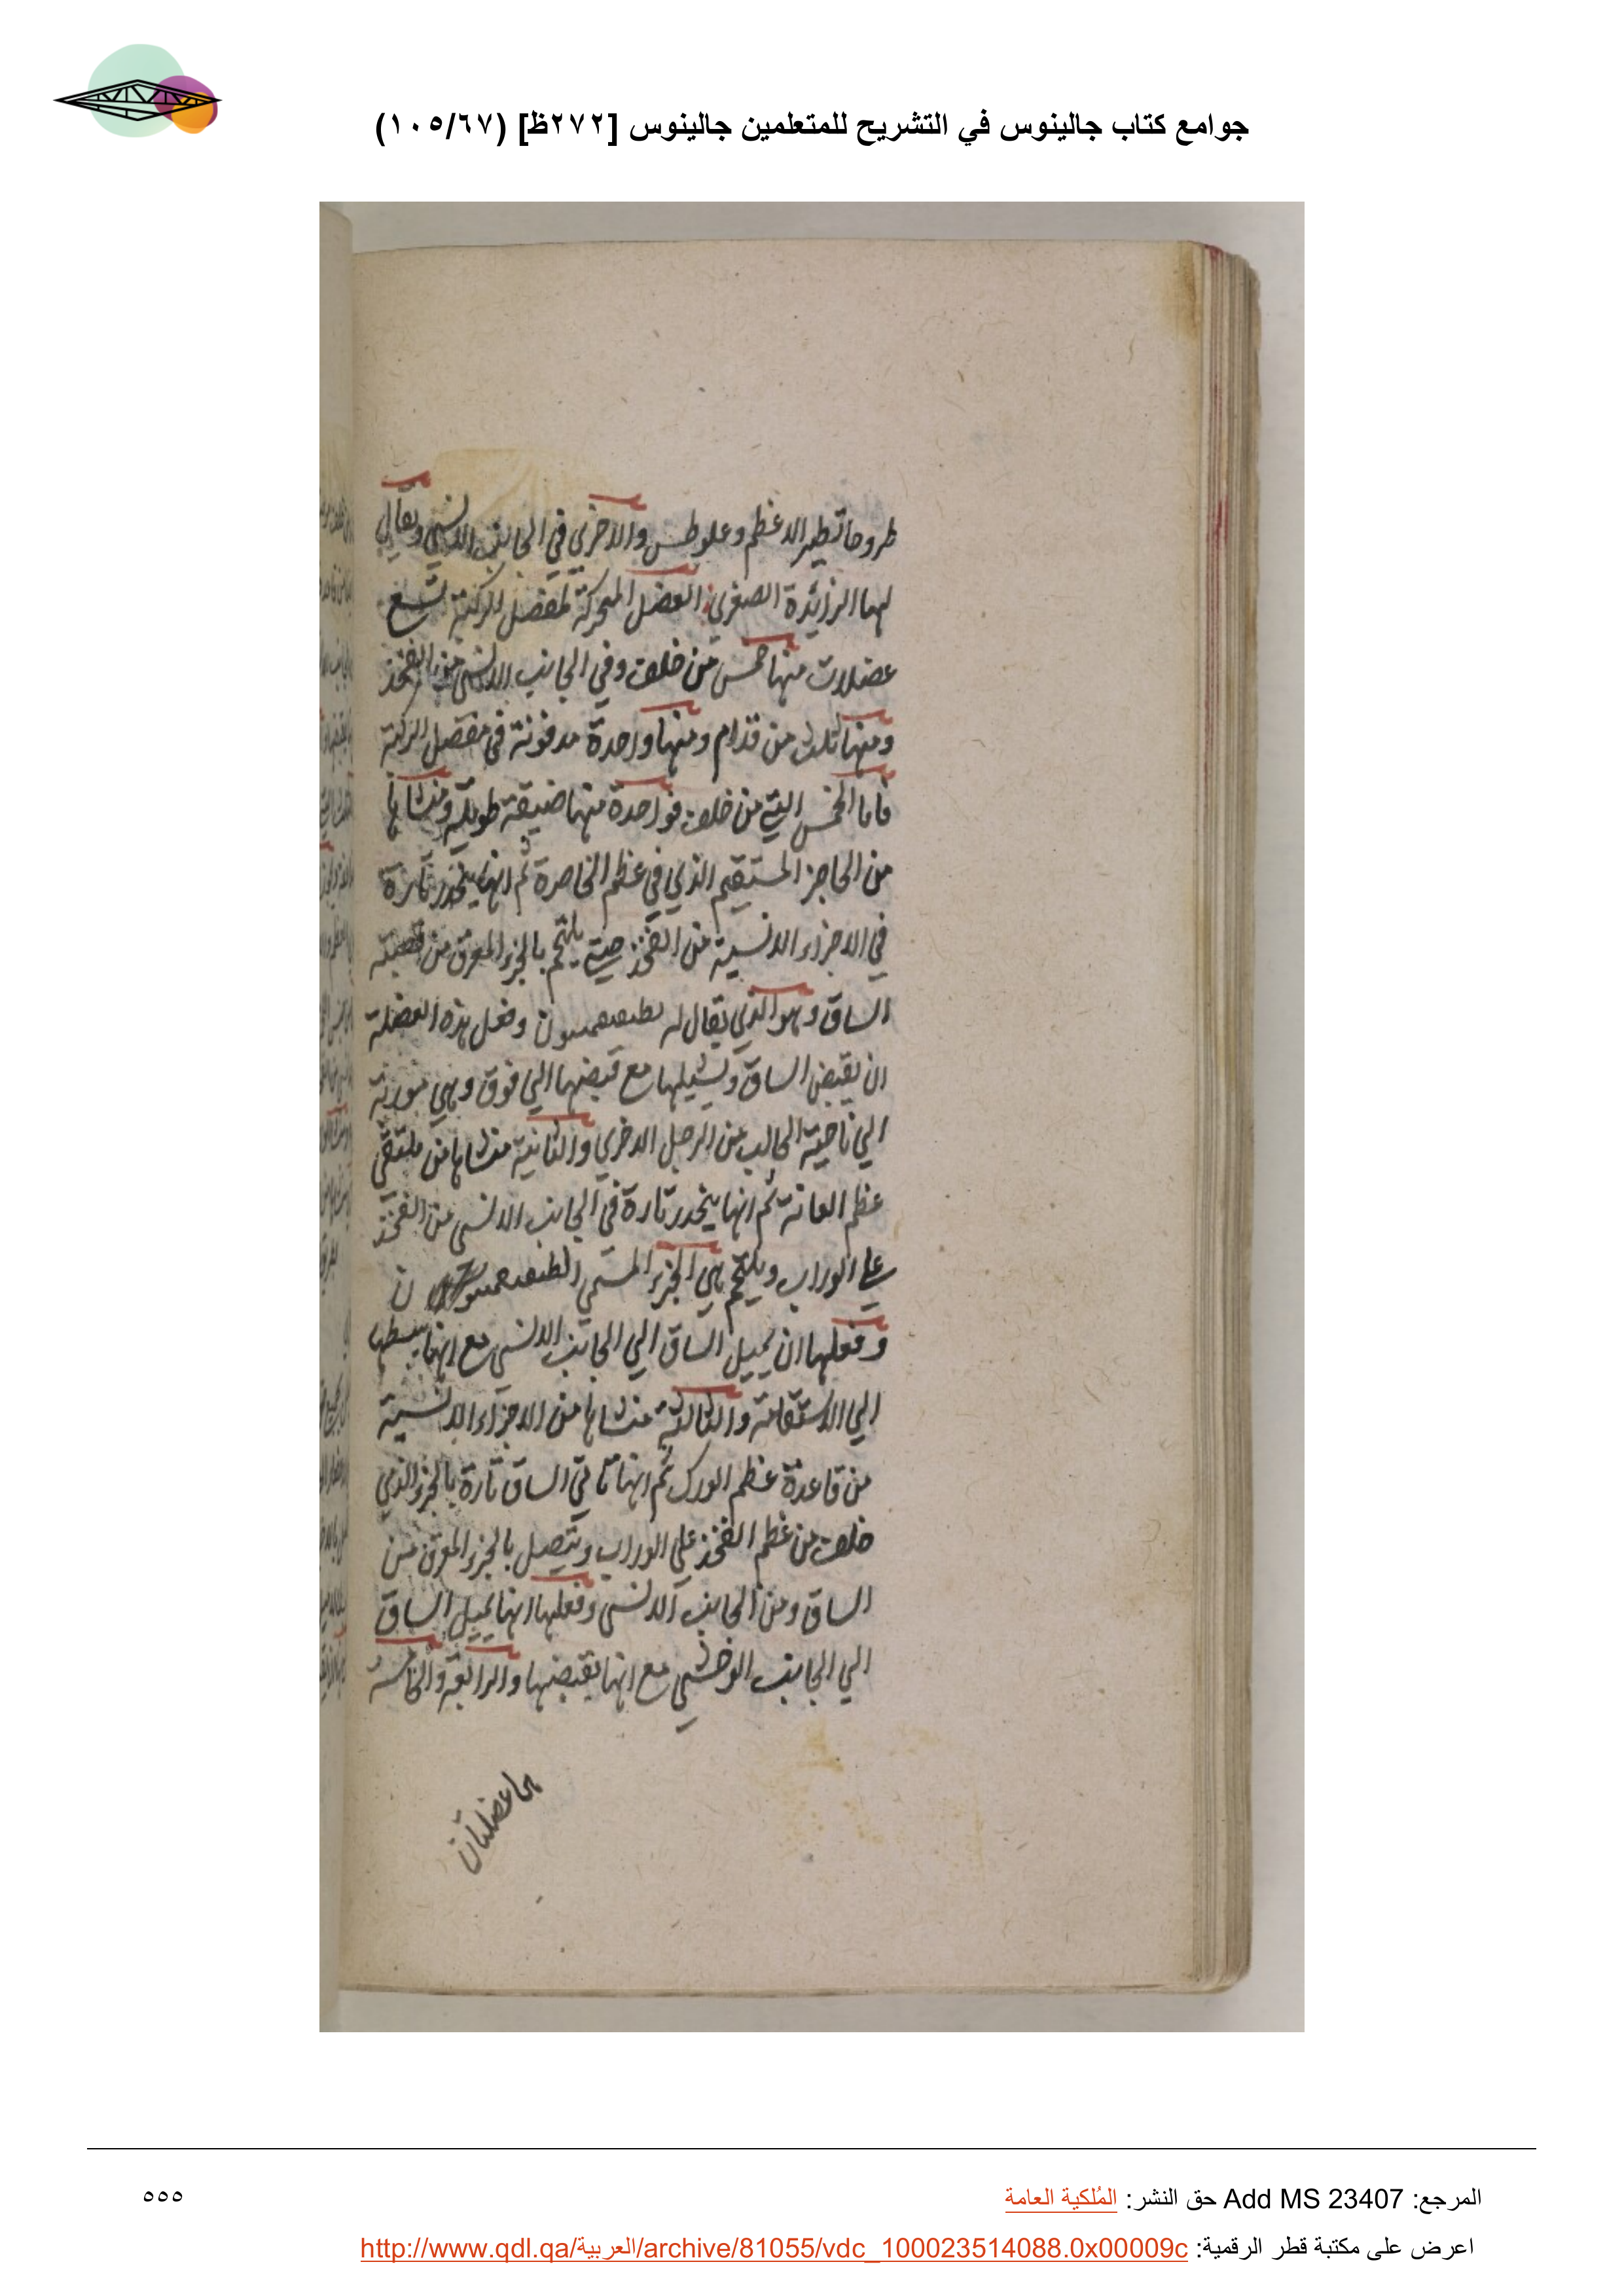 جوامع كتاب جالينوس في التشريح للمتعلمين جالينوس [٢٧٢ظ] (١٠٥/٦٧)
طروحانطير الاعظم وعلوطس والاخري في الجانب الانسي ويقال
لها الزائدة الصغري العضل المحركة لمفصل الركبة تسع
عضلات منها خمس من خلف وفي الجانب الانسي من الفخذ
ومنها ثلث من قدام ومنها واحدة مدفونة في مفصل الركبة
فاما الخمس التي من خلف فواحدة منها ضيقة طويلة ومنشاها
من الحاجز المستقيم الذي في عظم الخاصرة ثم انها ينحدر تارة
في الاجزاء الانسية من الفخذ حتي يلتحم بالجزء المعرق من قصبة
الساق وهو الذي يقال له وفعل هذه العضلة
ان يقبض الساق ويشيلها مع قبضها الي فوق وهي موربة
الي ناحية الحالب من الرجل الاخري والثانية منشاها من ملتقي
عظم العانة ثم انها ينحدر تارة في الجانب الانسي من الفخذ
علي الوراب ويلتحم هي الجزء المسمي
وفعلها ان يميل الساق الي الجانب الانسي مع انها يبسطها
الي الاستقامة والثالثة منشاها من الاجزاء الانسية
من قاعدة عظم الورك ثم انها تاتي الساق تارة بالجزء الذي
خلف من عظم الفخذ علي الوراب ويتصل بالجزء المعرق من
الساق ومن الجانب الانسي وفعلها انها يميل الساق
الي الجانب الوحشي مع انها يقبضها والرابعة والخامسة
هما عضلتان
المرجع: Add MS 23407 حق النشر: المُلكية العامة
٥٥٥
اعرض على مكتبة قطر الرقمية: http://www.qdl.qa/العربية/archive/81055/vdc_100023514088.0x00009c